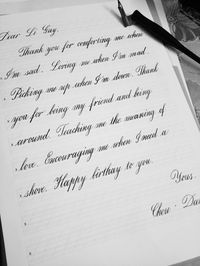 Dear Di Guy,
Thank you for comforting me when
I'm sad. Loving me when I'm mad.
Picking me up when I'm down. Thank
you for being my friend and being
around. Teaching me the meaning of
love. Encouraging me when I need a
shove. Happy birthay to you.
Yours,